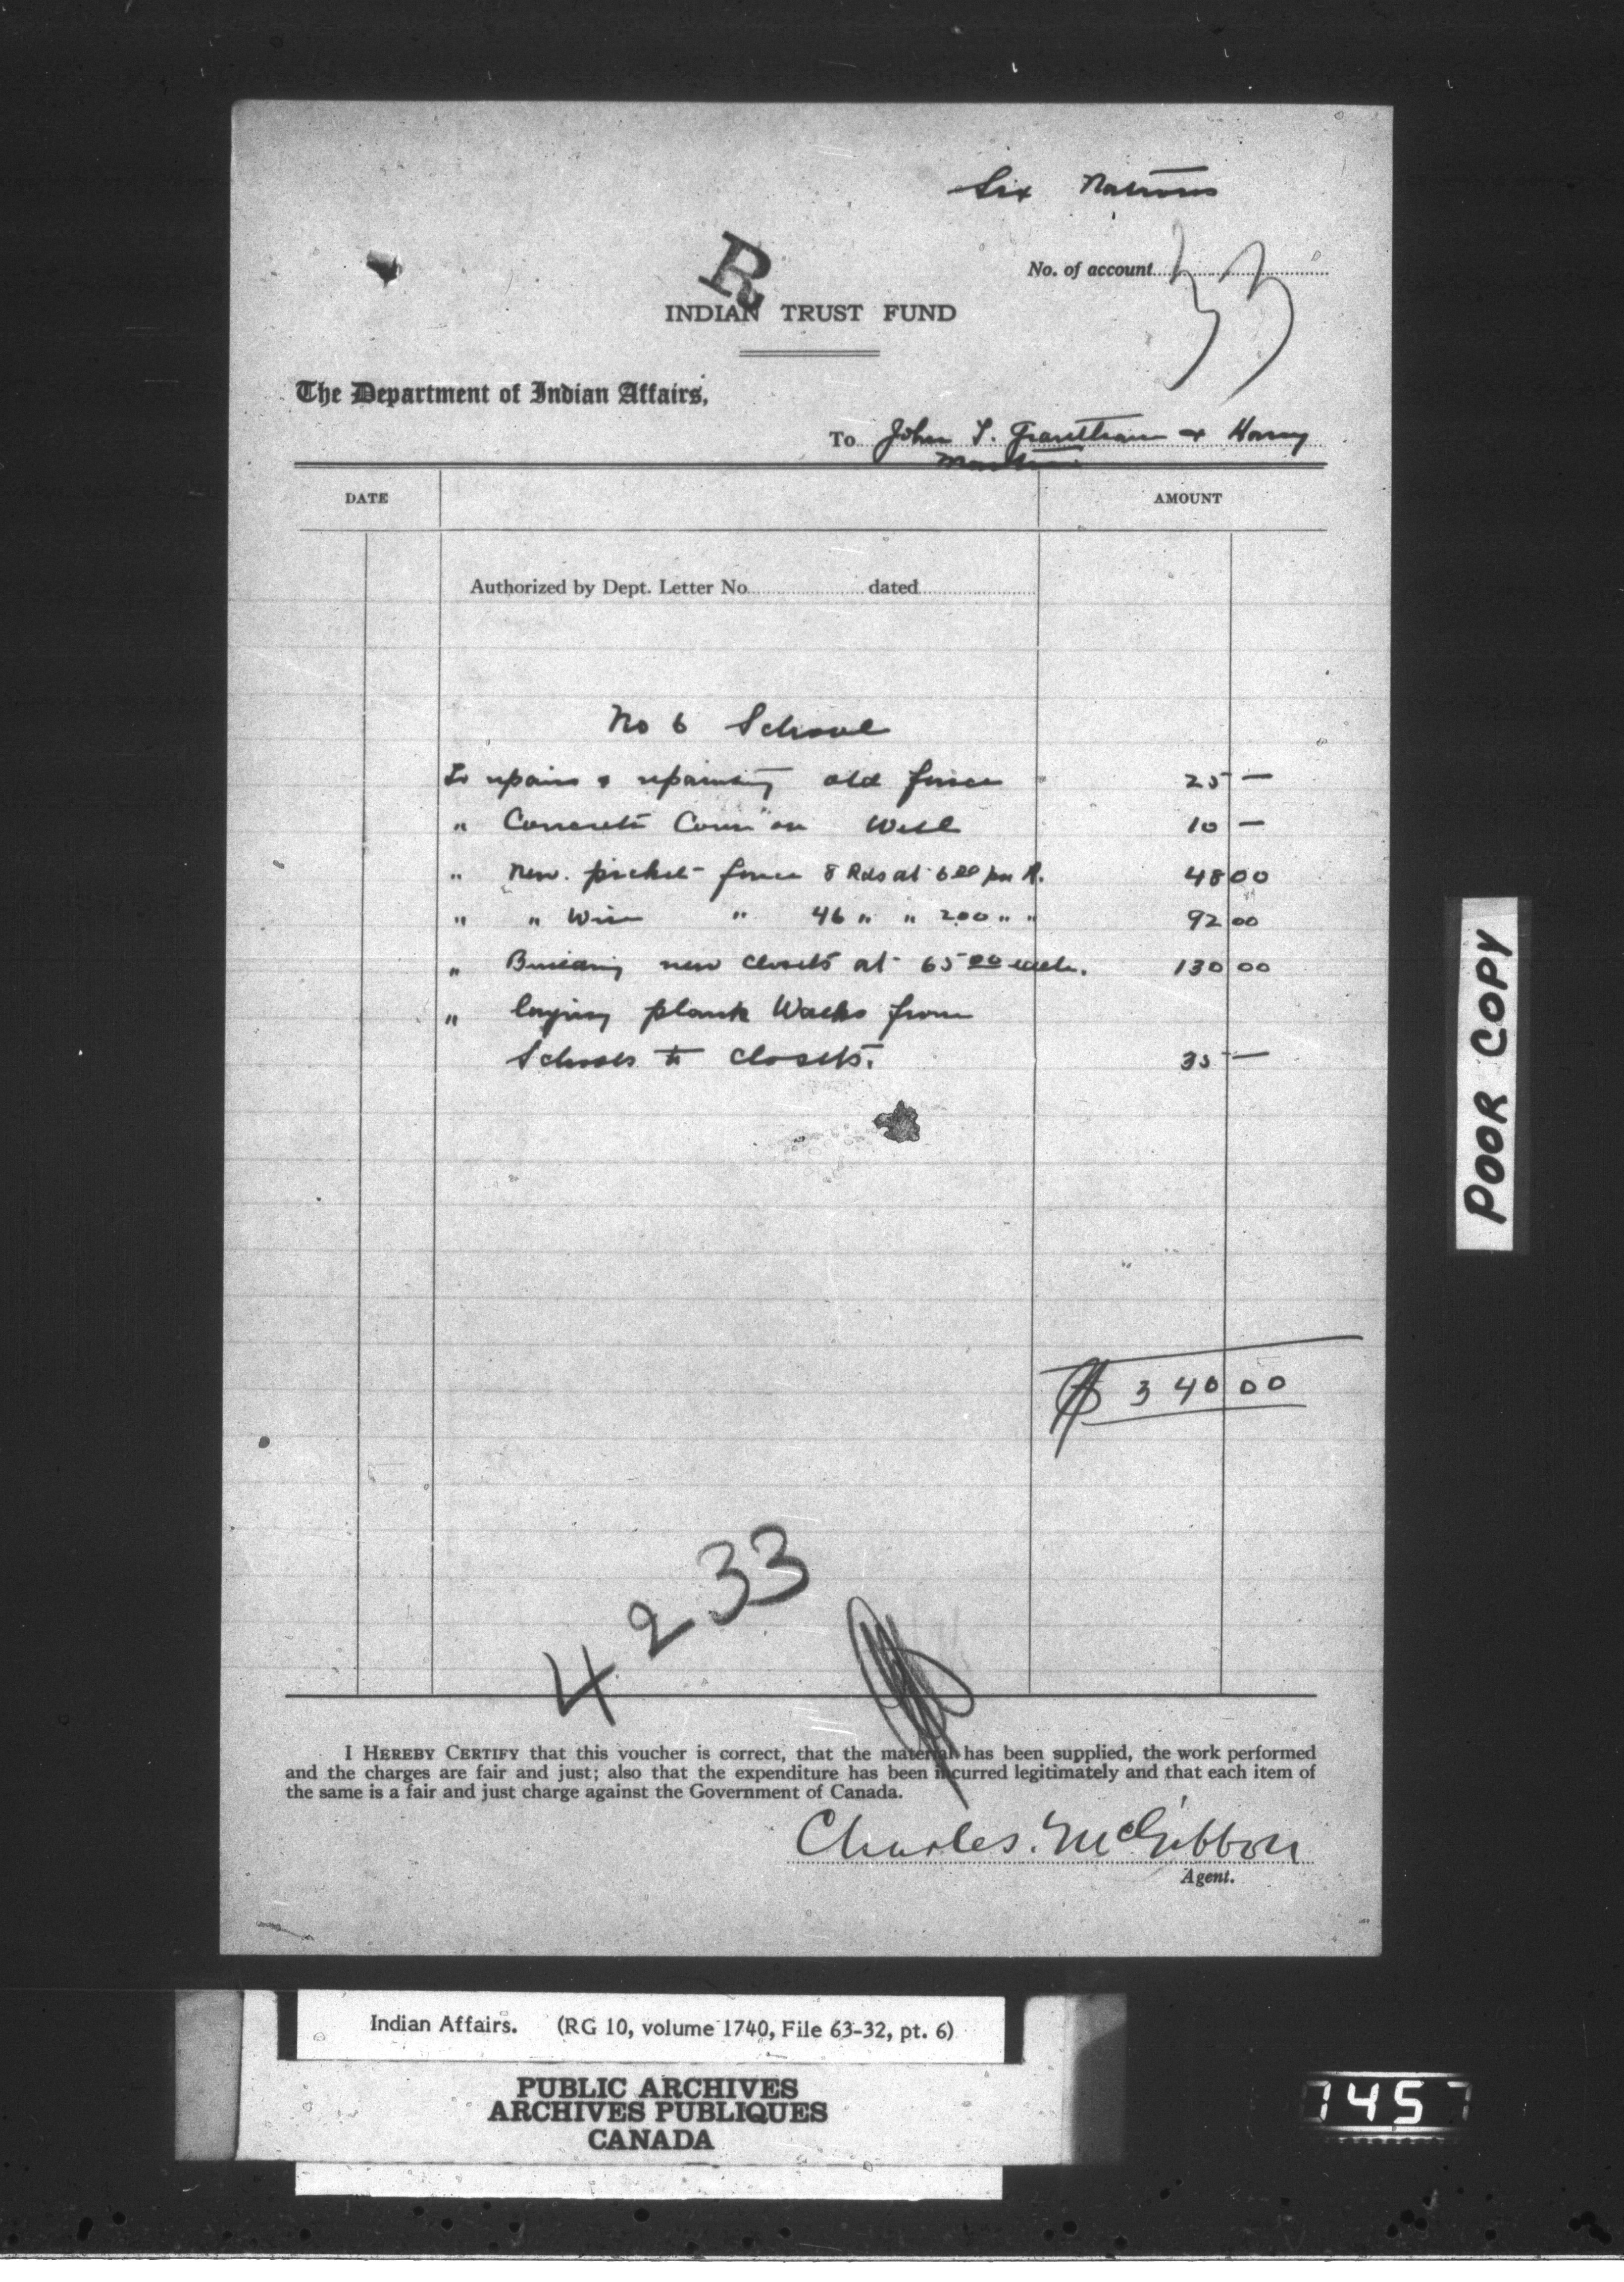 Six Nations
No. of account 33
R
INDIAN TRUST FUND
The Department of Indian Affairs,
To John S. Grantham & Harry
Martin
DATE AMOUNT
Authorized by Dept. Letter No. dated
No 6 School
To repairs & repainting old fence 25 —
" Concrete Cover on Well 10 —
" New. picket fence 8 Rds at 6 00 per R. 48 00
" " Wire " 46 " " 2.00 " " 92 00
" Building new closets at 65 00 each. 130 00
" laying plank Walks from
Schools to closets. 35 —
$ 340 00
4233
I HEREBY CERTIFY that this voucher is correct, that the material has been supplied, the work performed
and the charges are fair and just; also that the expenditure has been incurred legitimately and that each item of
the same is a fair and just charge against the Government of Canada.
Charles. McGibbon
Agent.
POOR COPY
Indian Affairs. (RG 10, volume 1740, File 63-32, pt. 6)
PUBLIC ARCHIVES
ARCHIVES PUBLIQUES
CANADA
1457